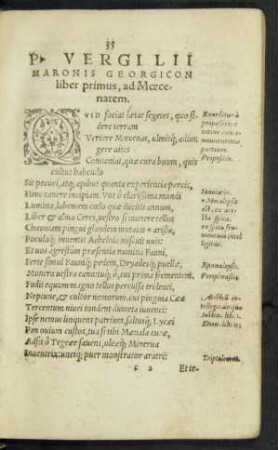 35
P. VERGILII
MARONIS GEORGICON
liber primus, ad Mœce-
natem.
QVID faciat lætas segetes, quo si-
dere terram
Vertere Mœcenas, ulmisq́; adiun
gere uites
Conueniat, quæ cura boum, quis
cultus habendo
Sit pecori, atq; apibus quanta experientia parcis,
Hinc canere incipiam. Vos ô clarißima mundi
Lumina, labentem cœlo quæ ducitis annum,
Liber & alma Ceres, uestro si munere tellus
Chaoniam pingui glandem mutauit arista,
Poculaq́; inuentis Acheloia miscuit uuis:
Et uos agrestum præsentia numina Fauni,
Ferte simul Fauniq́; pedem, Dryadesq́; puellæ,
Munera uestra cano: tuq́; ô, cui prima frementem
Fudit equum magno tellus percussa tridenti,
Neptune, & cultor nemorum, cui pinguia Cææ
Tercentum niuei tondent dumeta iuuenci:
Ipse nemus linquens patrium, saltusq́; Lycæi
Pan ouium custos, tua si tibi Mænala curæ,
Adsis ô Tegeæe fauens, oleæq́; Minerua
Inuentrix, uncíq; puer monstrator aratri:
Et te
Propositio.
Inuocatio.
Epanalepsis.
Periphrasis.
Triptolemus.